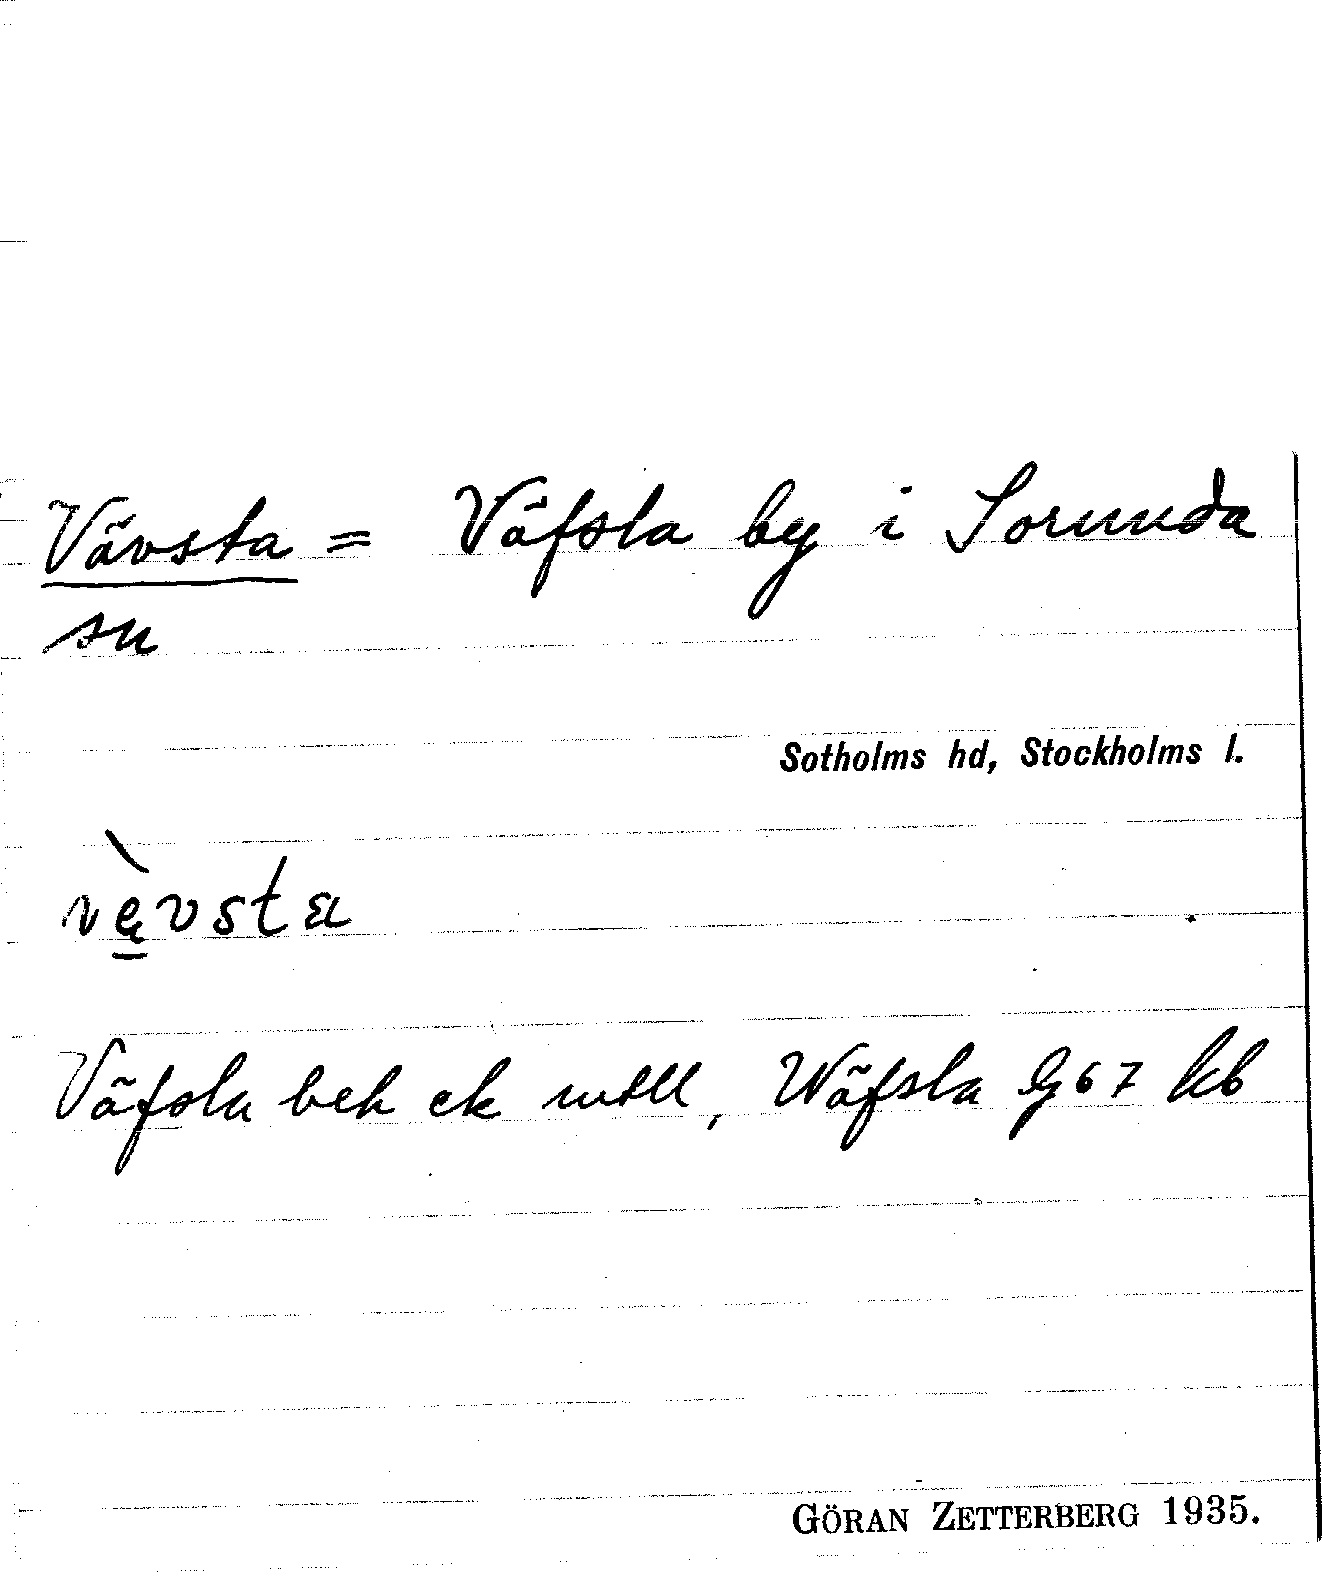 Vävsta = Väfsta by i Sorunda
sn
Sotholms hd, Stockholms l.
vę̀vsta
Väfsta beh ek , Wäfsta G67 kb
GÖRAN ZETTERBERG 1935.